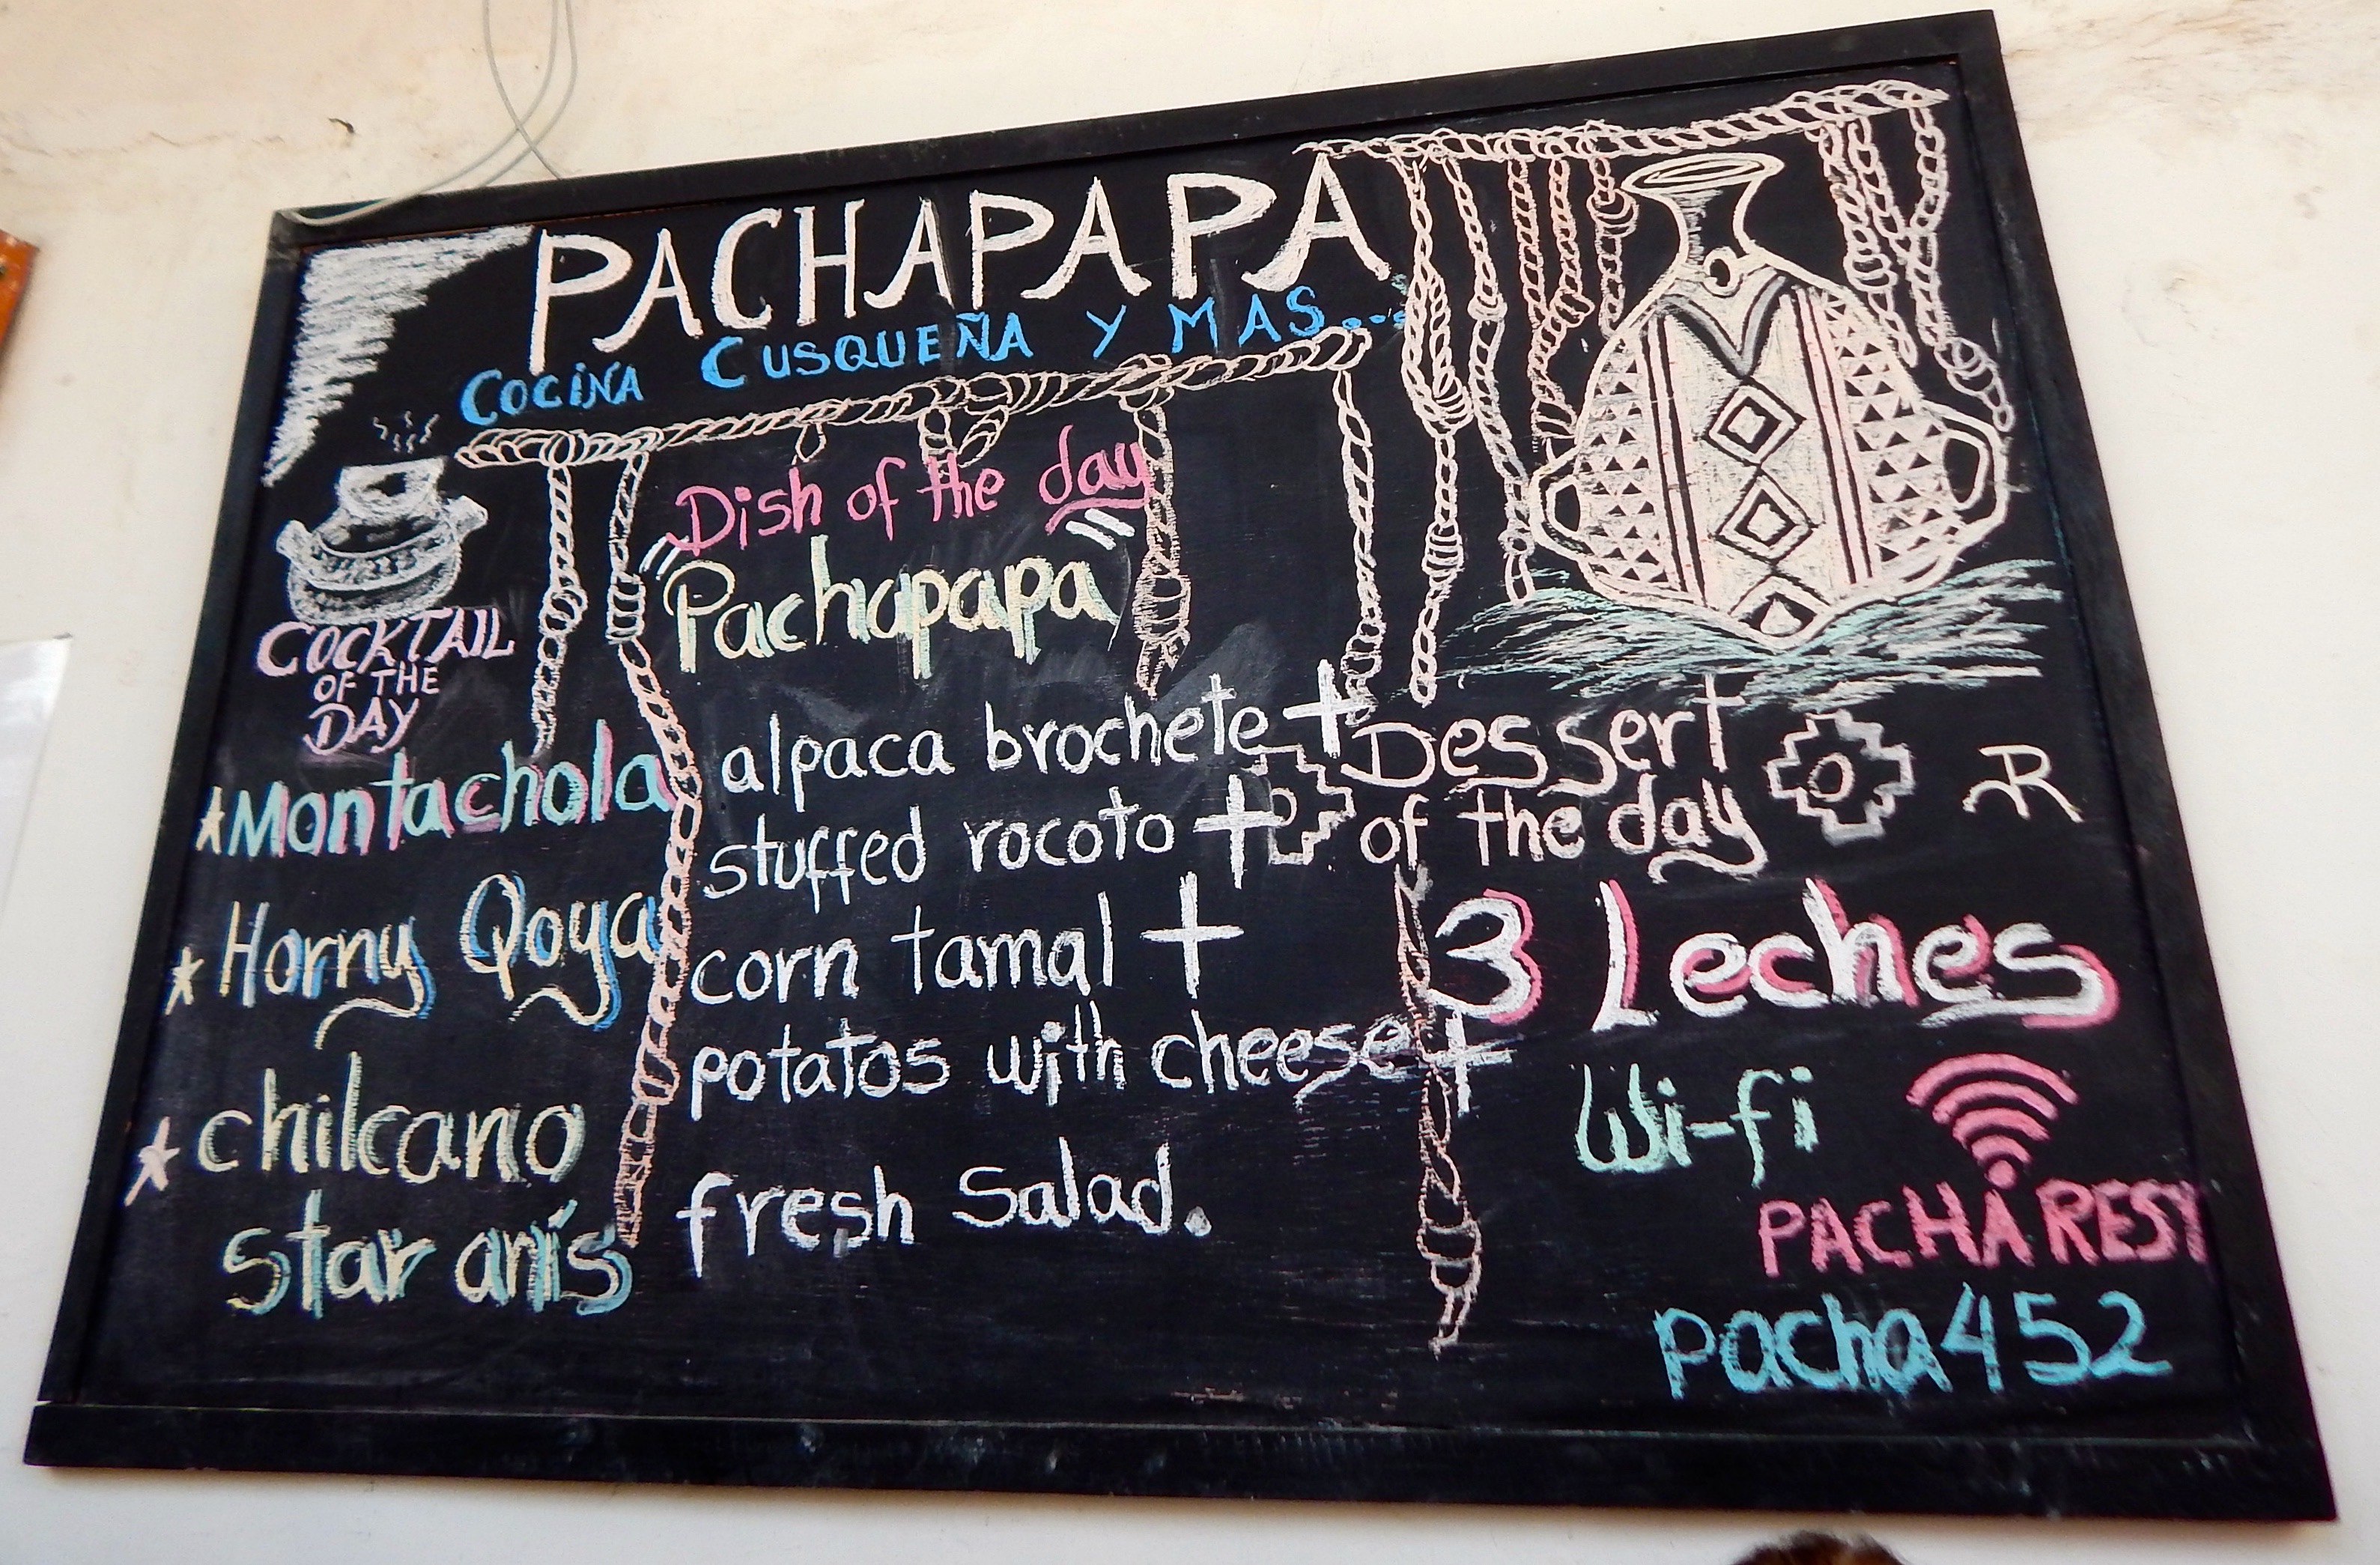 PACHAPAPA
COCINA CUSQUEÑA Y MAS...
COCKTAIL
OF THE
DAY
*Montachola
* Horny Qoya
* chilcano
star anís
Dish of the day
"Pachapapa"
alpaca brochete +
stuffed rocoto +
corn tamal +
potatos with cheese +
fresh Salad.
Dessert
of the day
R
3 Leches
Wi-fi
PACHAREST
pacha452